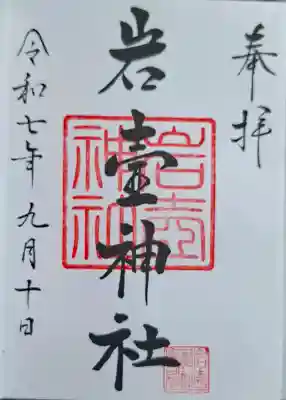 奉拝
岩壺神社
岩壺
神社
令和七年九月十日